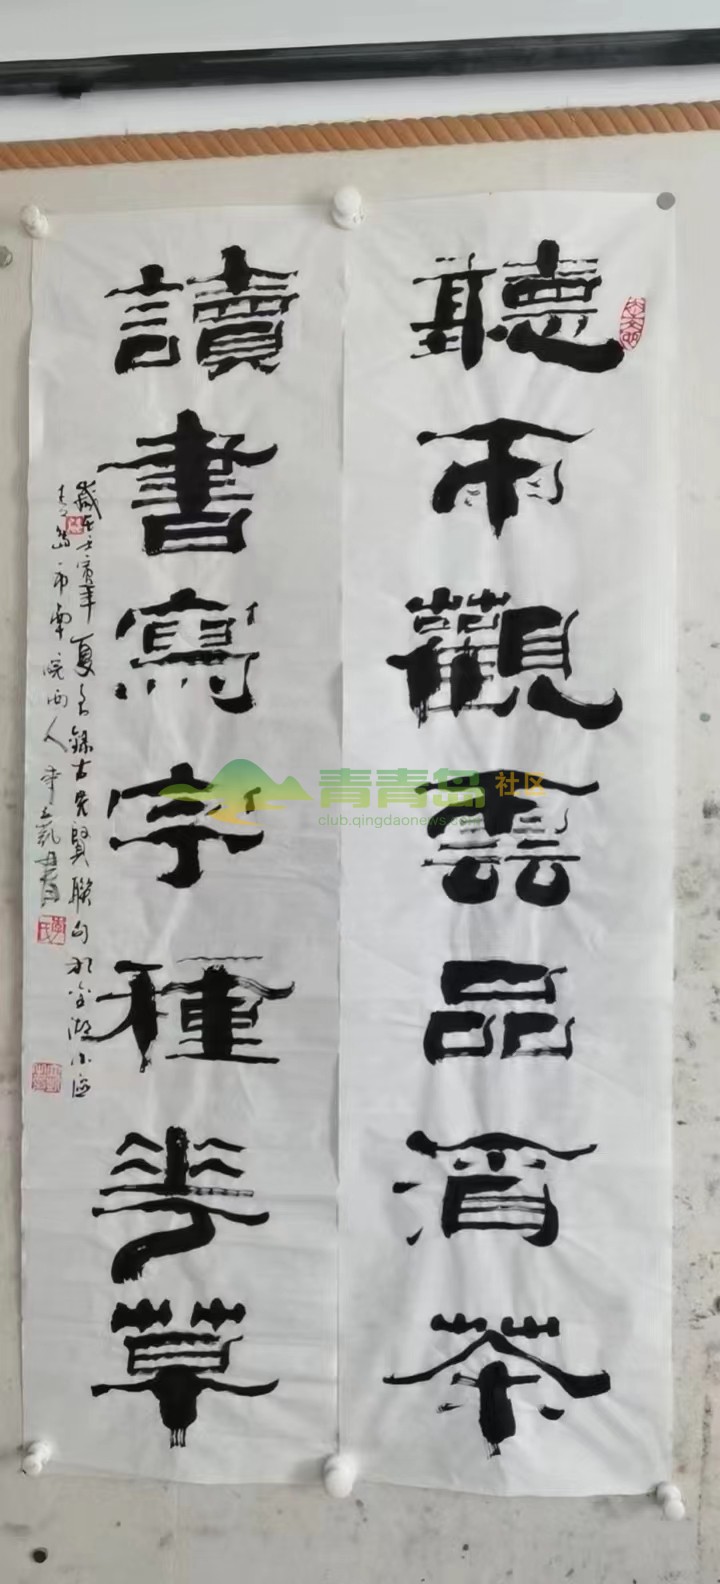 聽雨觀雲品酒茶
讀書寫字種花草
歲在壬寅年夏錄古先賢聯句
青島市院人書
青青岛社区
club.qingdaonews.com